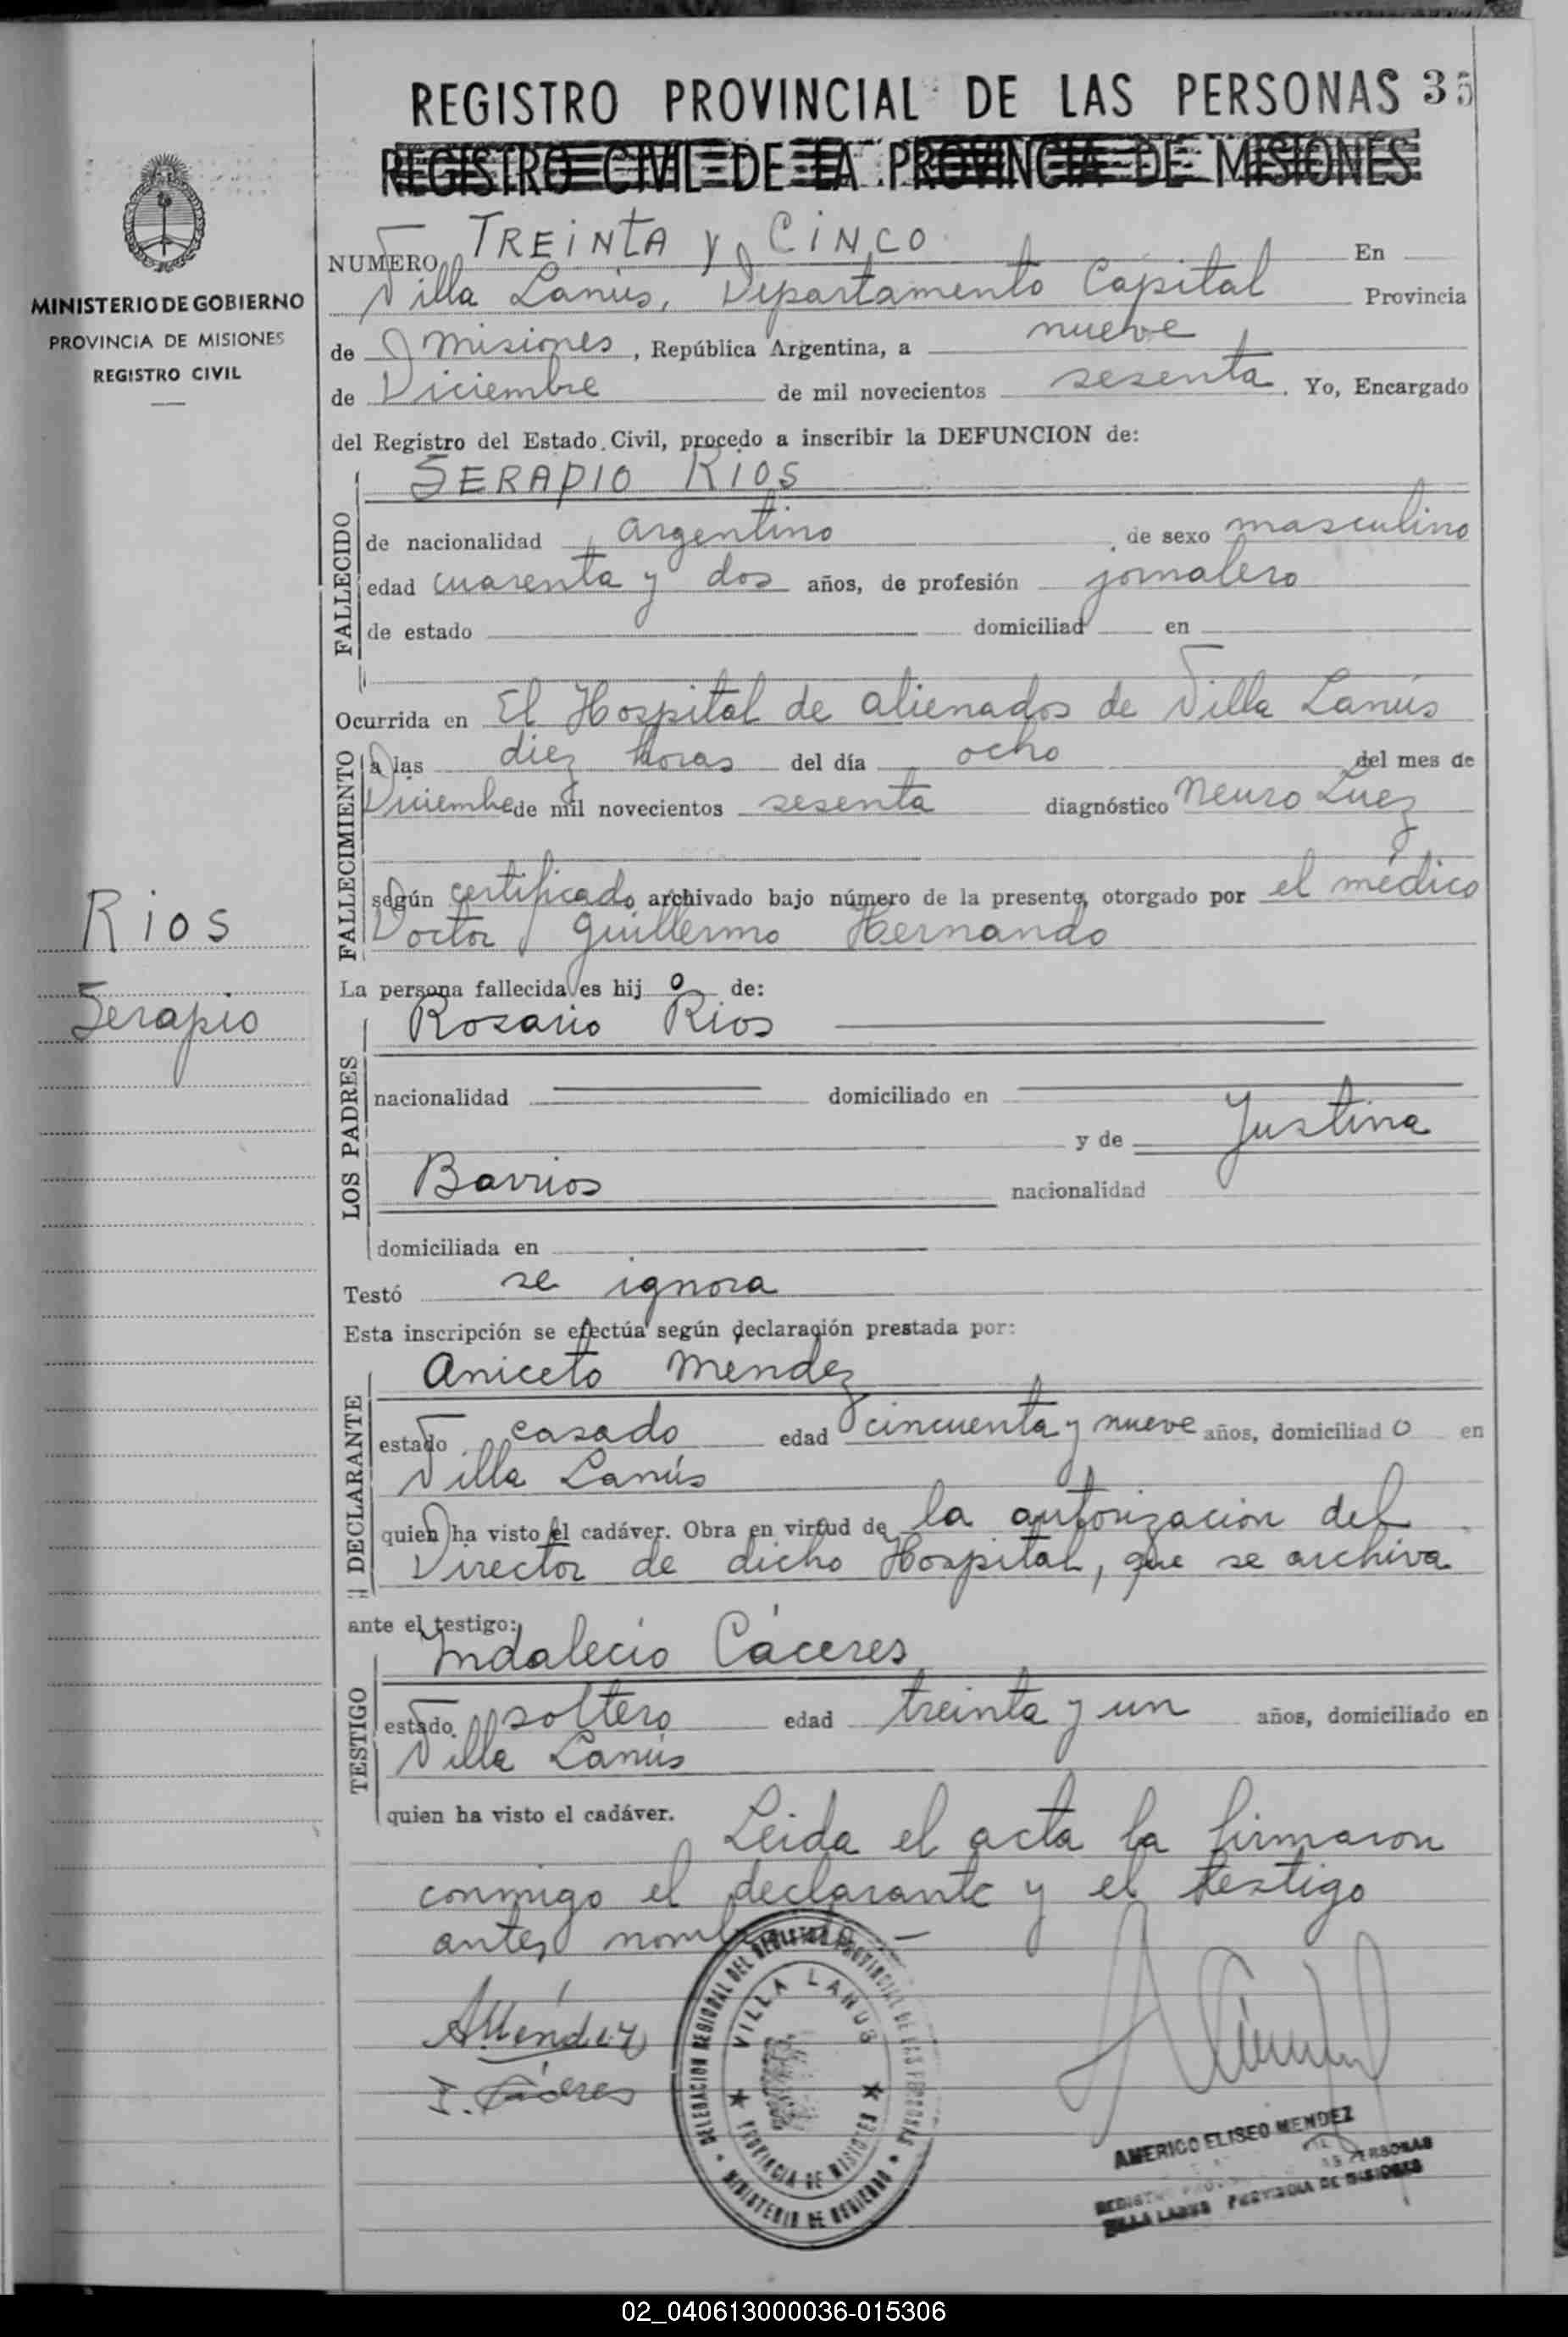 REGISTRO PROVINCIAL DE LAS PERSONAS 35
REGISTRO CIVIL DE LA PROVINCIA DE MISIONES
MINISTERIO DE GOBIERNO
PROVINCIA DE MISIONES
REGISTRO CIVIL
NUMERO TREINTA y CINCO En
Villa Lanús, Departamento Capital Provincia
de Misiones, República Argentina, a nueve
de Diciembre de mil novecientos sesenta. Yo, Encargado
del Registro del Estado Civil, procedo a inscribir la DEFUNCION de:
FALLECIDO
SERAPIO RIOS
de nacionalidad argentino, de sexo masculino
edad cuarenta y dos años, de profesión jornalero
de estado domiciliad en
Ocurrida en El Hospital de alienados de Villa Lanús
FALLECIMIENTO
a las diez horas del día ocho del mes de
Diciembre de mil novecientos sesenta diagnóstico Neuro Luez
según certificado archivado bajo número de la presente, otorgado por el médico
Doctor Guillermo Hernando
Rios
Serapio
La persona fallecida es hij o de:
LOS PADRES
Rosario Rios
nacionalidad domiciliado en
y de Justina
Barrios nacionalidad
domiciliada en
Testó se ignora
Esta inscripción se efectúa según declaración prestada por:
DECLARANTE
Aniceto Mendez
estado casado edad cincuenta y nueve años, domiciliad o en
Villa Lanús
quien ha visto el cadáver. Obra en virtud de la autorización del
Director de dicho Hospital, que se archiva
ante el testigo:
TESTIGO
Indalecio Cáceres
estado soltero edad treinta y un años, domiciliado en
Villa Lanús
quien ha visto el cadáver. Leida el acta la firmaron
conmigo el declarante y el testigo
antes nombrado.—
AMéndez
I. Cáceres
DELEGACION REGIONAL DEL REGISTRO PROVINCIAL DE LAS PERSONAS
VILLA LANUS
PROVINCIA DE MISIONES
MINISTERIO DE GOBIERNO
AMERICO ELISEO MENDEZ
VILLA LANUS PROVINCIA DE MISIONES
02_040613000036-015306